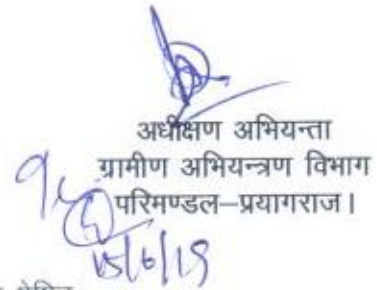 अधीक्षण अभियन्ता
ग्रामीण अभियन्त्रण विभाग
परिमण्डल–प्रयागराज।
15/6/19